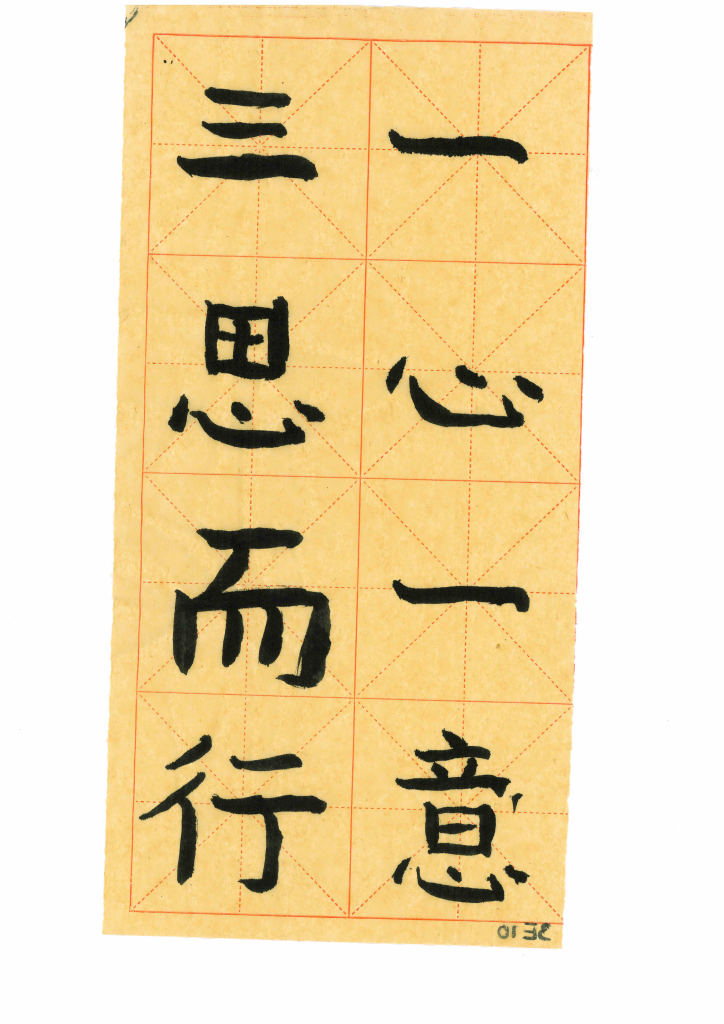 一心一意
三思而行
3E10